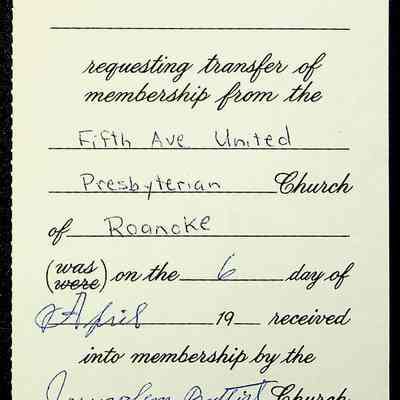 requesting transfer of
membership from the
Fifth Ave United
Presbyterian Church
of Roanoke
(was
were) on the 6 day of
April 19 received
into membership by the
Jerusalem Baptist Church